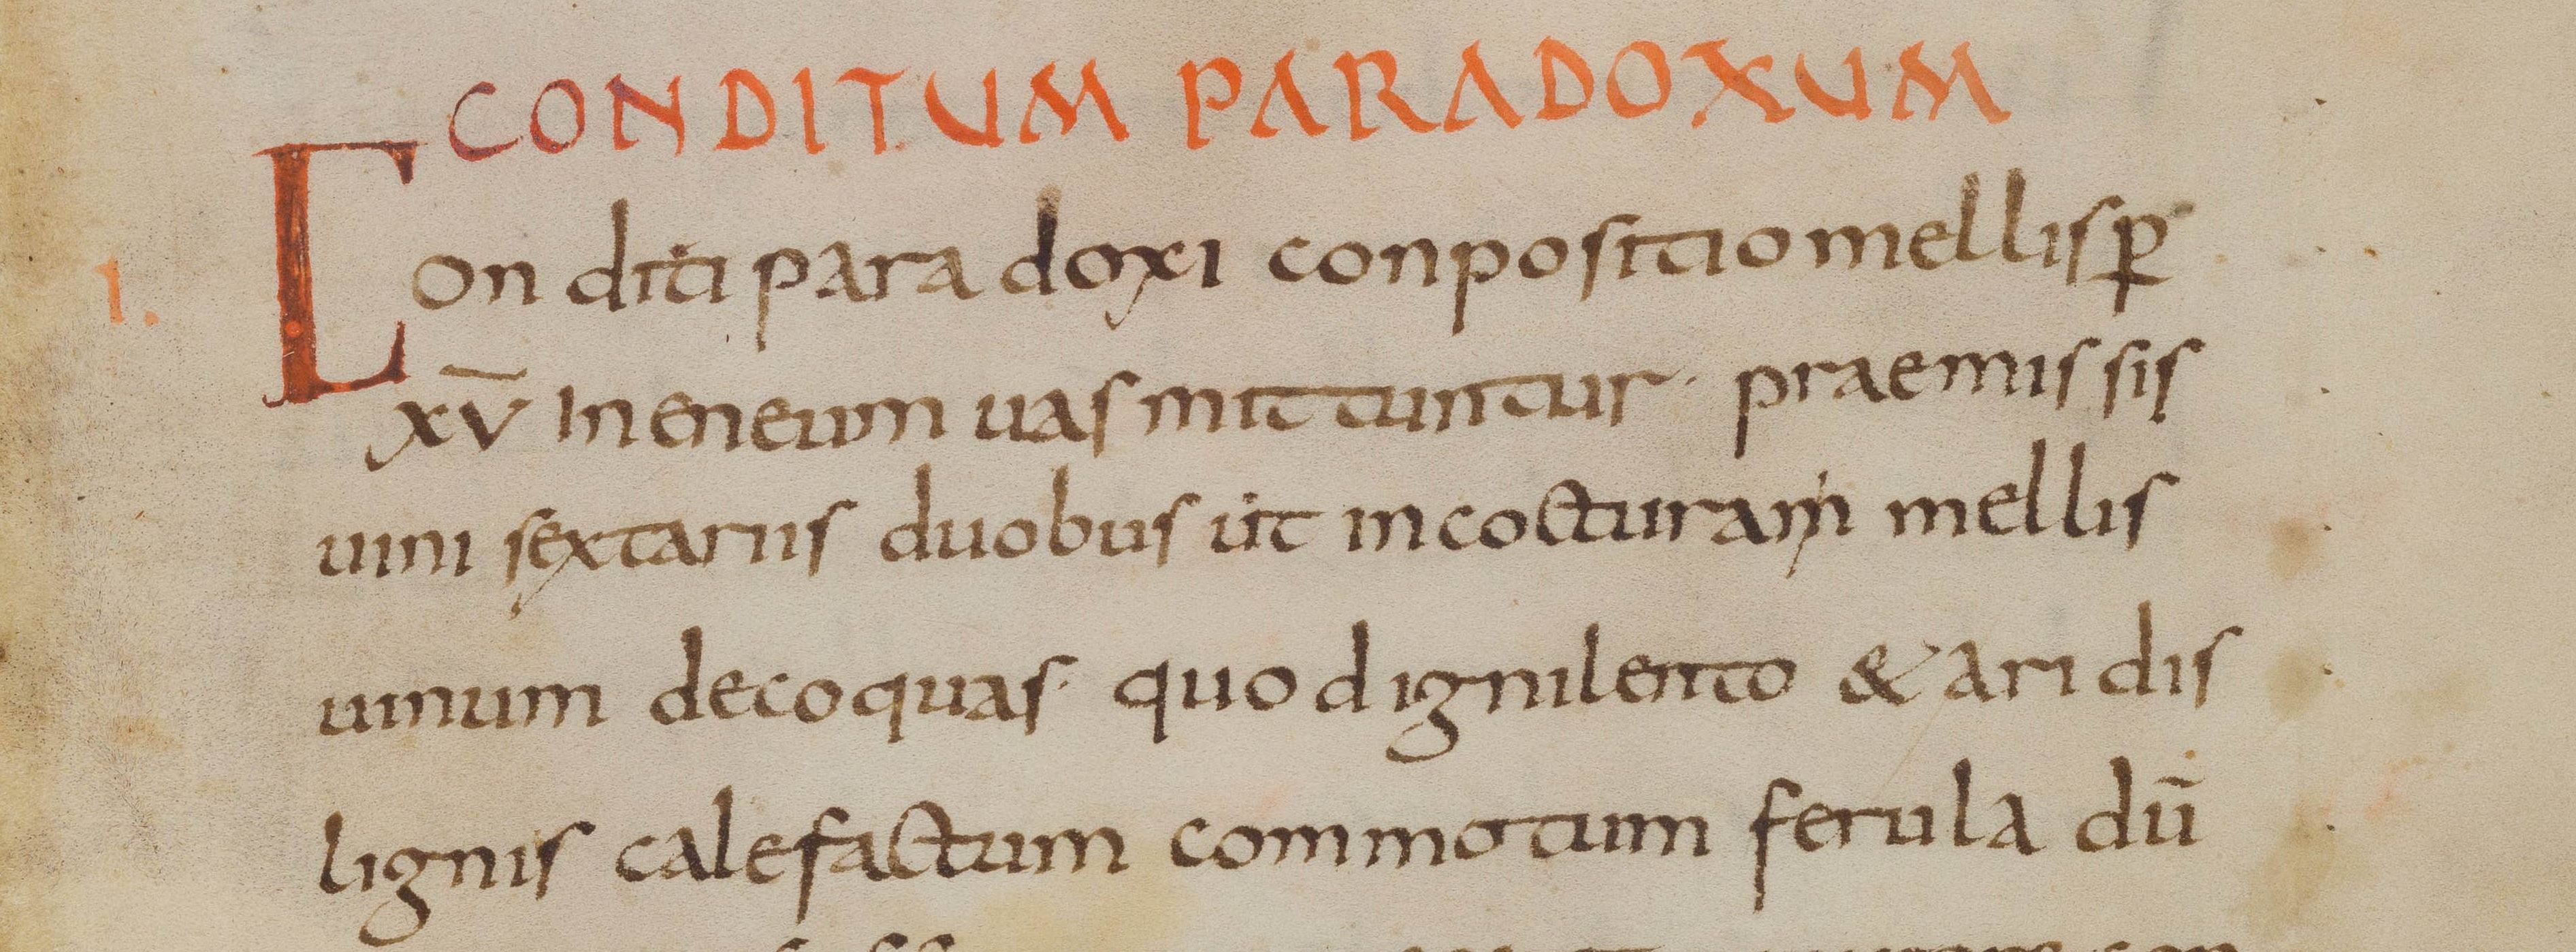 CONDITUM PARADOXUM
1. Conditi paradoxi conpositio mellis p̄
x̄v̄ In eneum uas mittuntur · praemissis
uini sextariis duobus ut in cocturam mellis
uinum decoquas · quod igni lento & aridis
lignis calefactum commotum ferula dū